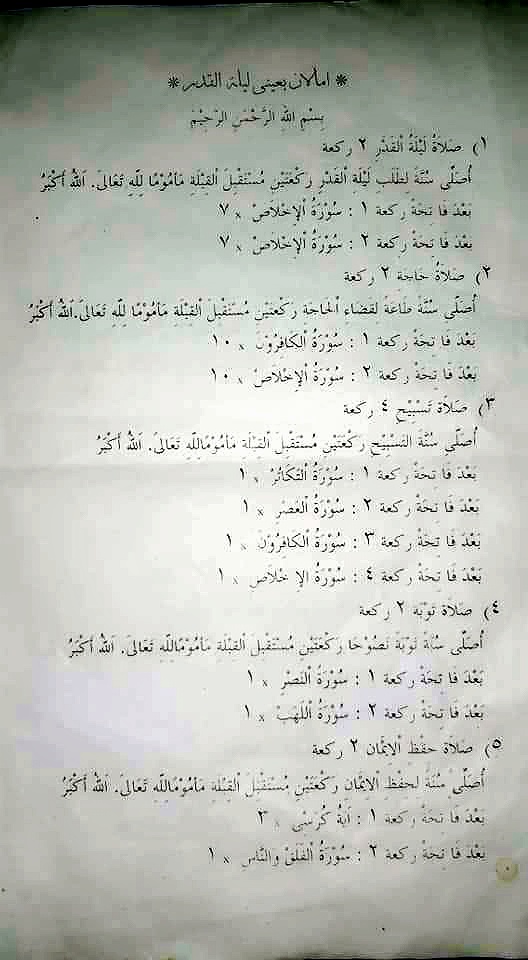 * املان بعينى ليلة القدر *
بِسْمِ اللهِ الرَّحْمَنِ الرَّحِيْمِ
١) صَلاَةُ لَيْلَةُ الْقَدْرِ ٢ ركعة
أُصَلِّى سُنَّةَ لِطَلَبِ لَيْلَةِ الْقَدْرِ رَكْعَتَيْنِ مُسْتَقْبِلَ الْقِبْلَةِ مَأمُوْمًا لِلّهِ تَعَالىَ. اَللهُ أَكْبَرُ
بَعْدَ فَاتِحَةْ ركعة ١ : سُوْرَةُ اْلإِخْلاَصْ x ٧
بَعْدَ فَاتِحَةْ ركعة ٢ : سُوْرَةُ اْلإِخْلاَصْ x ٧
٢) صَلاَةُ حَاجَة ٢ ركعة
أُصَلِّى سُنَّةَ طَاعَةً لِقَضَاءِ الْحَاجَةِ رَكْعَتَيْنِ مُسْتَقْبِلَ الْقِبْلَةِ مَأمُوْمًا لِلّهِ تَعَالىَ.اَللهُ أَكْبَرُ
بَعْدَ فَاتِحَةْ ركعة ١ : سُوْرَةُ الْكَافِرُوْنَ x ١٠
بَعْدَ فَاتِحَةْ ركعة ٢ : سُوْرَةُ اْلإِخْلاَصْ x ١٠
٣) صَلاَة تَسْبِيْحِ ٤ ركعة
أُصَلِّى سُنَّةَ التَسْبِيْحِ رَكْعَتَيْنِ مُسْتَقْبِلَ الْقِبْلَةِ مَأمُوْمًالِلّهِ تَعَالىَ. اَللهُ أَكْبَرُ
بَعْدَ فَاتِحَةْ ركعة ١ : سُوْرَةُ التَّكَاثُرْ x ١
بَعْدَ فَاتِحَةْ ركعة ٢ : سُوْرَةُ الْعَصْرِ x ١
بَعْدَ فَاتِحَةْ ركعة ٣ : سُوْرَةُ الْكَافِرُوْنَ x ١
بَعْدَ فَاتِحَةْ ركعة ٤ : سُوْرَةُ الإِخْلاَص x ١
٤) صَلاَة تَوْبَة ٢ ركعة
أُصَلِّى سُنَّةَ تَوْبَةً نَصُوْحًا رَكْعَتَيْنِ مُسْتَقْبِلَ الْقِبْلَةِ مَأمُوْمًالِلّهِ تَعَالىَ. اَللهُ أَكْبَرُ
بَعْدَ فَاتِحَةْ ركعة ١ : سُوْرَةُ النَّصْرِ x ١
بَعْدَ فَاتِحَةْ ركعة ٢ : سُوْرَةُ اللَّهَبْ x ١
٥) صَلاَة حِفْظِ اْلإِيْمَان ٢ ركعة
أُصَلِّى سُنَّةً لِحِفْظِ اْلاِيْمَانِ رَكْعَتَيْنِ مُسْتَقْبِلَ الْقِبْلَةِ مَأمُوْمًالِلّهِ تَعَالىَ. اَللهُ أَكْبَرُ
بَعْدَ فَاتِحَةْ ركعة ١ : أَيَةُ كُرْسِى x ٣
بَعْدَ فَاتِحَةْ ركعة ٢ : سُوْرَةُ الْفَلَقْ وَالنَّاسِ x ١